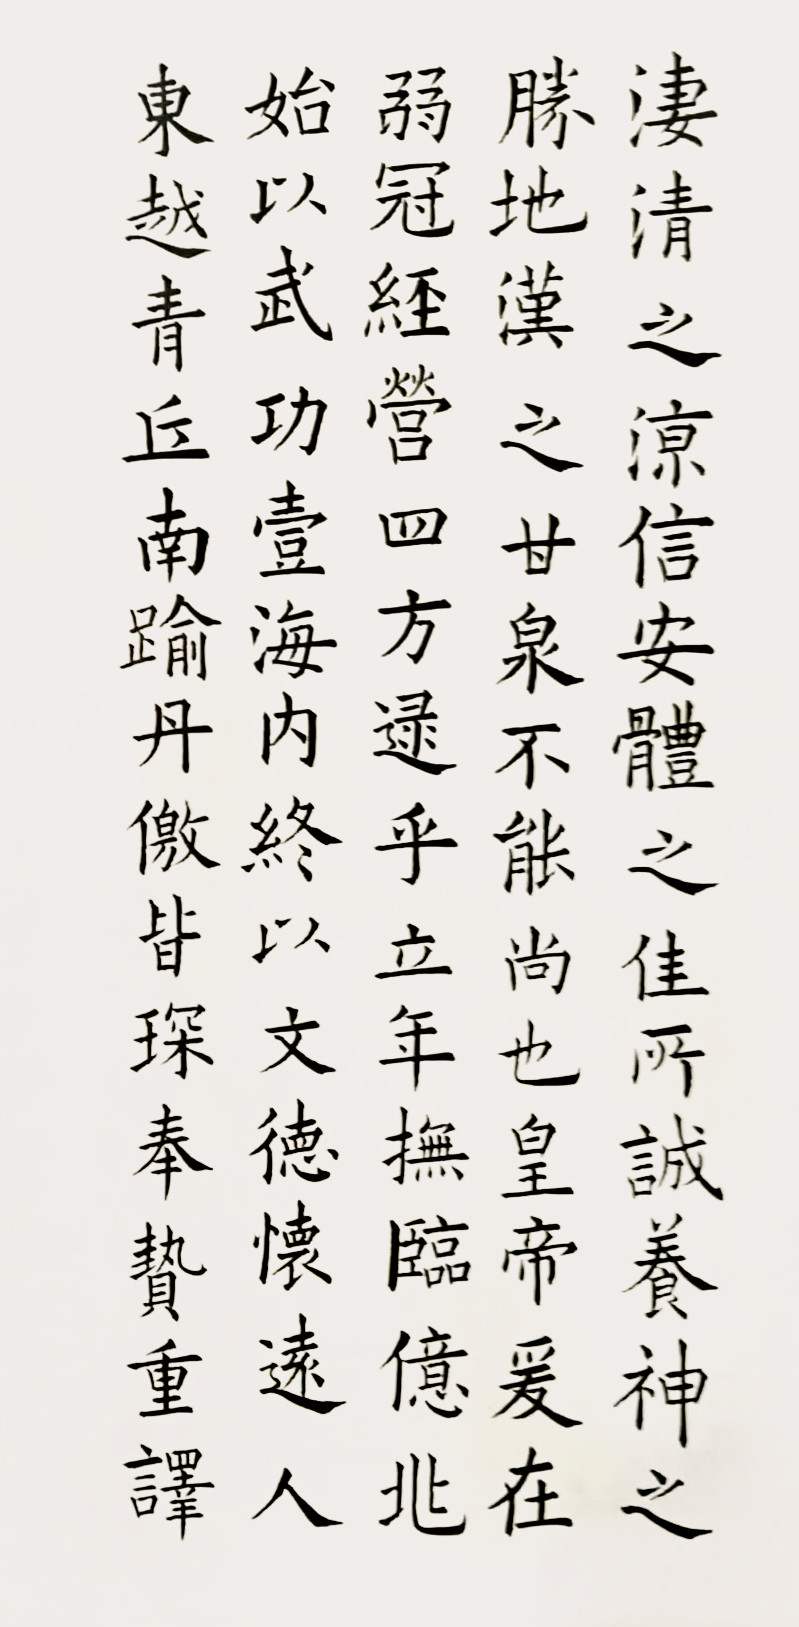 淒清之涼信安體之佳所誠養神之
勝地漢之甘泉不能尚也皇帝爰在
弱冠經營四方逯乎立年撫臨億兆
始以武功壹海内終以文德懷遠人
東越青丘南踰丹儌皆琛奉贄重譯